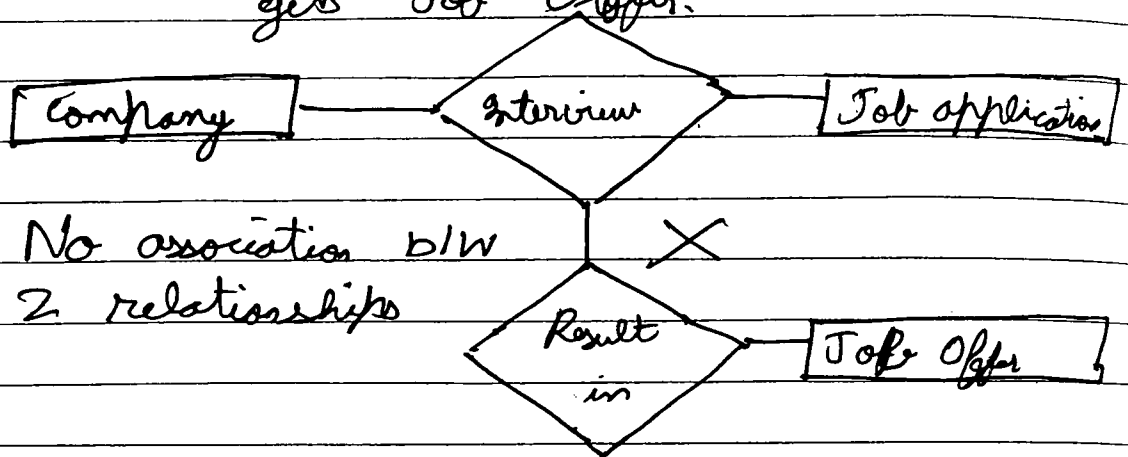 gets Job Offer.
Company
Interview
Job application
No association b/w
2 relationships
Result
in
Job Offer